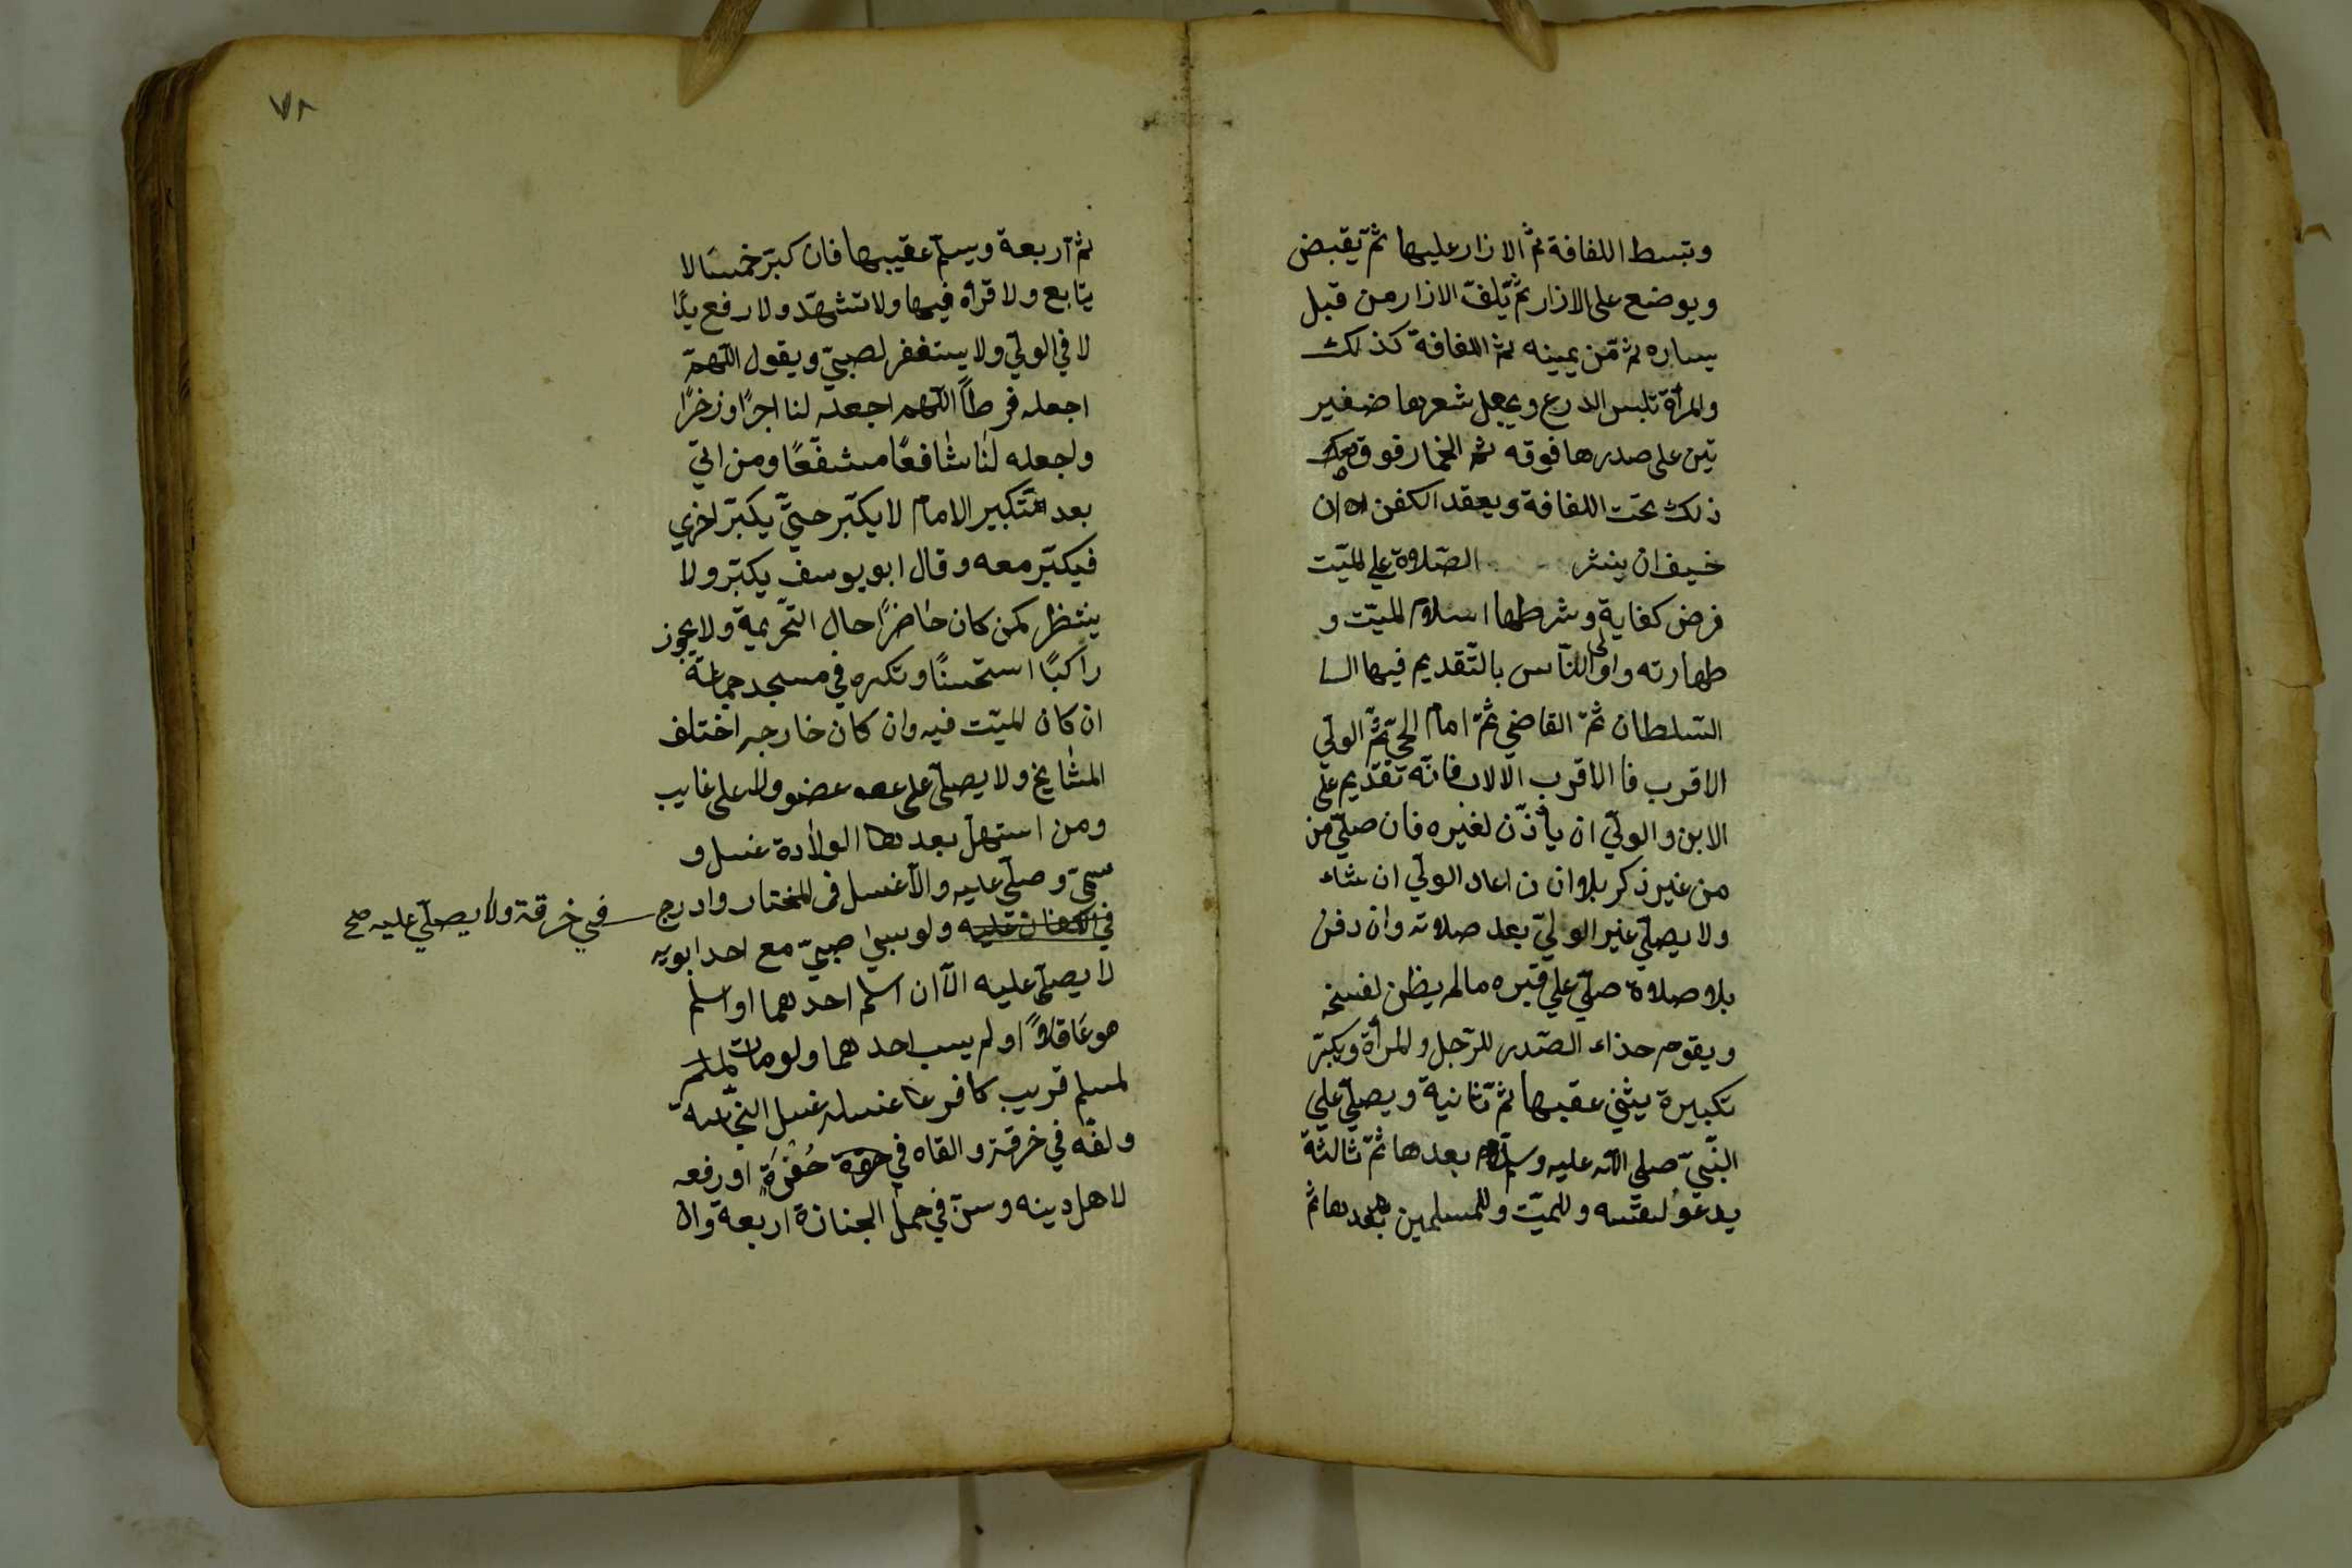 وتبسط اللفافة ثم الازار عليها ثم يقبض
ويوضع على الازار ثم يلف الازار من قبل
يساره ثم من يمينه ثم اللفافة كذلك
والمرأة تلبس الدرع ويجعل شعرها ضفير
تين على صدرها فوقه ثم الخمار فوق
ذلك تحت اللفافة ويعقد الكفن ان
خيف ان ينشر الصلاة على الميت
فرض كفاية وشرطها اسلام الميت و
طهارته واولى الناس بالتقديم فيها السا
السلطان ثم القاضي ثم امام الحي ثم الولي
الاقرب فا الاقرب الا الاب فانه تقديم على
الابن والولي ان يأذن لغيره فان صلى من
من غير ذكر بلا ان ن اعاد الولي ان شاء
ولا يصلي غير الولي بعد صلاته وان دفن
بلا صلاة صلي علي قبره مالم يظن تفسخه
ويقوم حذاء الصدر للرجل والمرأة ويكبر
تكبيرة يثني عقبها ثم ثانية ويصلي علي
النبي صلي الله عليه وسلم بعدها ثم ثالثة
يدعو لنفسه وللميت وللمسلمين بعدها ثم
٧٨
ثم اربعة ويسلم عقيبها فان كبر خمسا لا
يتابع ولا قرأة فيها ولا تشهد ولا رفع يد
لا في الولي ولا يستغفر لصبي ويقول اللهم
اجعله فرطا اللهم اجعله لنا اجرا وذخرا
واجعله لنا شافعا مشفعا ومن اتي
بعد تكبير الامام لا يكبر حتي يكبر اخري
فيكبر معه وقال ابو يوسف يكبر ولا
ينتظر كمن كان حاضرا حال التحريمة ولا يجوز
راكبا استحسنا وتكره في مسجد جماعة
ان كان الميت فيه وان كان خارجه اختلف
المشايخ ولا يصلي على عضو ولا على غايب
ومن استهل بعد الولادة غسل و
سمي وصلي عليه والا غسل في المختار وادرج
في خرقة ولا يصلي عليه صح
في ولو سبي صبي مع احد ابويه
لا يصلي عليه الا ان اسلم احدهما او اسلم
هو عاقلا او لم يسب احدهما ولو مات
لمسلم قريب كافر غسله غسل النجاسة
ولفه في خرقة والقاه في حفرة او رفعه
لاهل دينه وسن في حمل الجنازة اربعة وان